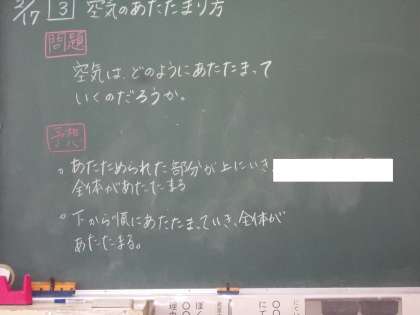 2/17 3 空気のあたたまり方
問題
空気は、どのようにあたたまって
いくのだろうか。
予想
。あたためられた部分が上にいき
全体があたたまる
。下から順にあたたまっていき、全体が
あたたまる。